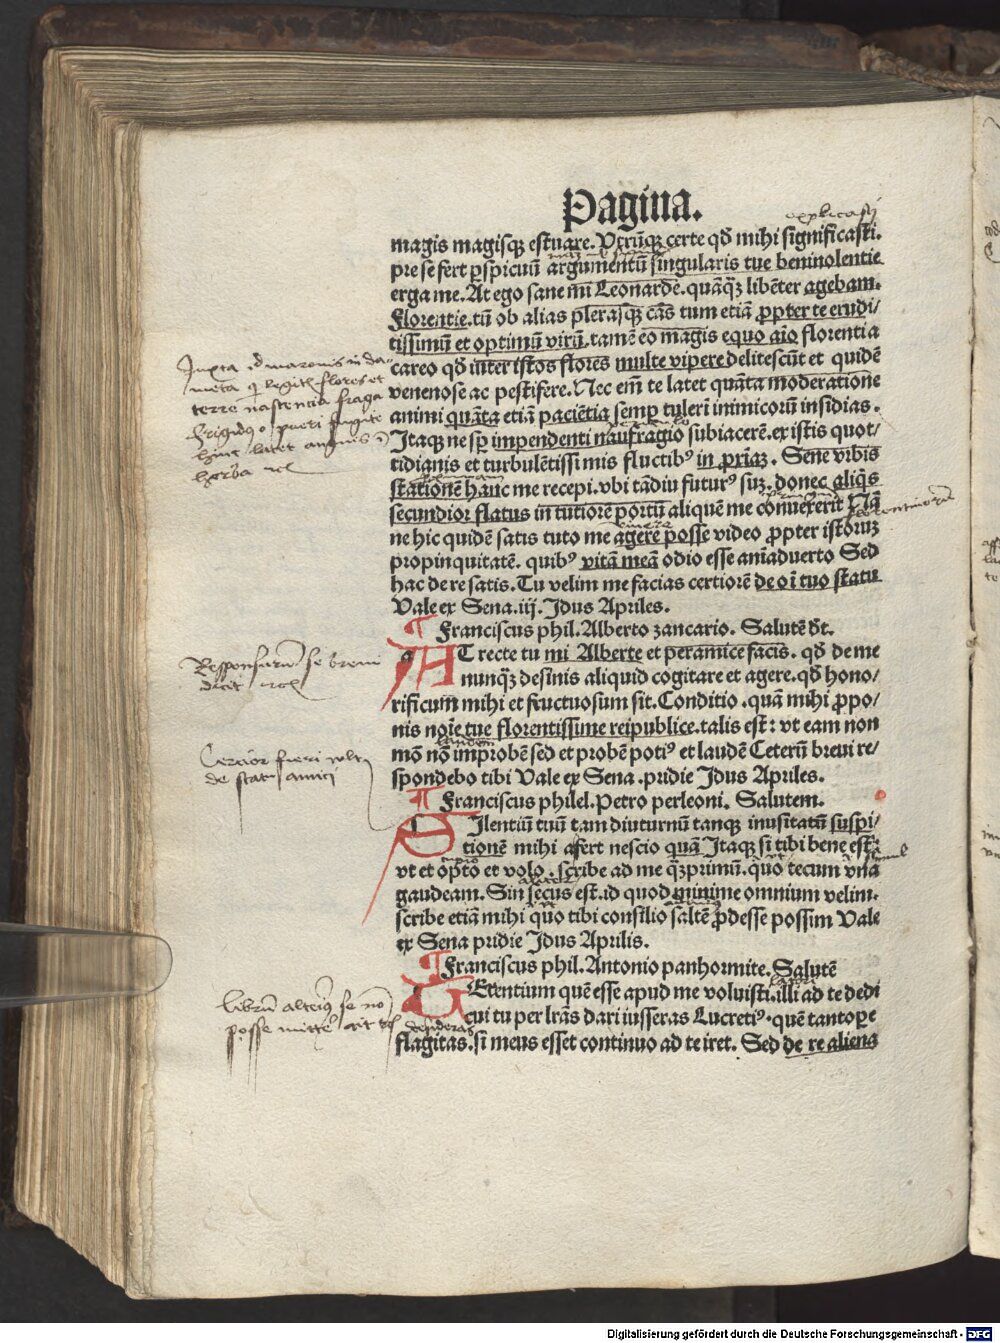 Pagina.
explicasti
magis magisqꝫ estuare. Vtrũqꝫ certe qđ mihi significasti.
pre se fert p̱spicuũ argumentũ singularis tue beniuolentie
erga me. At ego sane mi Leonarde. quãqꝫ libẽter agebam.
Florentie. tũ ob alias plerasqꝫ cãs tum etiã ꝓpter te erudi/
tissimũ et optimũ virũ. tamẽ eo magis equo aĩo florentia
careo qđ inter istos flores multe vipere delitescũt et quidẽ
venenose ac pestifere. Nec em̃ te latet quãta moderatione
animi quãta etiã paciẽtia semp̱ tulerĩ inimicorũ insidias.
Itaqꝫ ne sp̱ impendenti naufragio subiacerẽ. ex istis quot/
tidianis et turbulẽtissimis fluctibꝰ in p̃riaꝫ. Sene vrbis
stationẽ hanc me recepi. vbi tãdiu futurꝰ suꝫ. donec aliq̃s
secundior flatus in tutiorẽ portũ aliquẽ me conuexerit Nã
ne hic quidẽ satis tuto me agere posse video ꝓpter istoruꝫ
propinquitatẽ. quibꝰ vitã meã odio esse aniãduerto Sed
hac de re satis. Tu velim me facias certiorẽ de oĩ tuo statu
Vale ex Sena. iij. Idus Apriles.
¶ Franciscus phil. Alberto zancario. Salutẽ đt.
AT recte tu mi Alberte et peramice facis. qđ de me
nunqꝫ desinis aliquid cogitare et agere. qđ hono/
rificum mihi et fructuosum sit. Conditio. quã mihi ꝓpo/
nis noĩe tue florentissime reipublice. talis est: vt eam non
mõ nõ improbẽ sed et probẽ potiꝰ et laudẽ Ceterũ breui re/
spondebo tibi Vale ex Sena. pridie Idus Apriles.
¶ Franciscus philel. Petro perleoni. Salutem.
SIlentiũ tuũ tam diuturnũ tanqꝫ inusitatũ suspi/
tionẽ mihi afert nescio quã Itaqꝫ si tibi bene est:
vt et opto et volo. scribe ad me qꝫprimũ. quo tecum vna
gaudeam. Sin secus est. id quod minime omnium velim.
scribe etiã mihi quo tibi consilio saltẽ ꝓdesse possim Vale
ex Sena pridie Idus Aprilis.
¶ Franciscus phil. Antonio panhormite. Salutẽ
GEtentium quẽ esse apud me voluisti. illi ad te dedi
cui tu per lr̃as dari iusseras Lucretiꝰ. quẽ tantope̱
flagitas. si meus esset continuo ad te iret. Sed de re aliena
Juxta id maronis in da-
meta qui legitis flores et
terre nascencia fraga
frigidus o pueri fugite
hinc latet anguis in
herba
Responsurũ se breui
dicit
Cercior fieri vult
de statu amici
librũ alterius se nõ
posse mittere ait
desideras
Digitalisierung gefördert durch die Deutsche Forschungsgemeinschaft - DFG